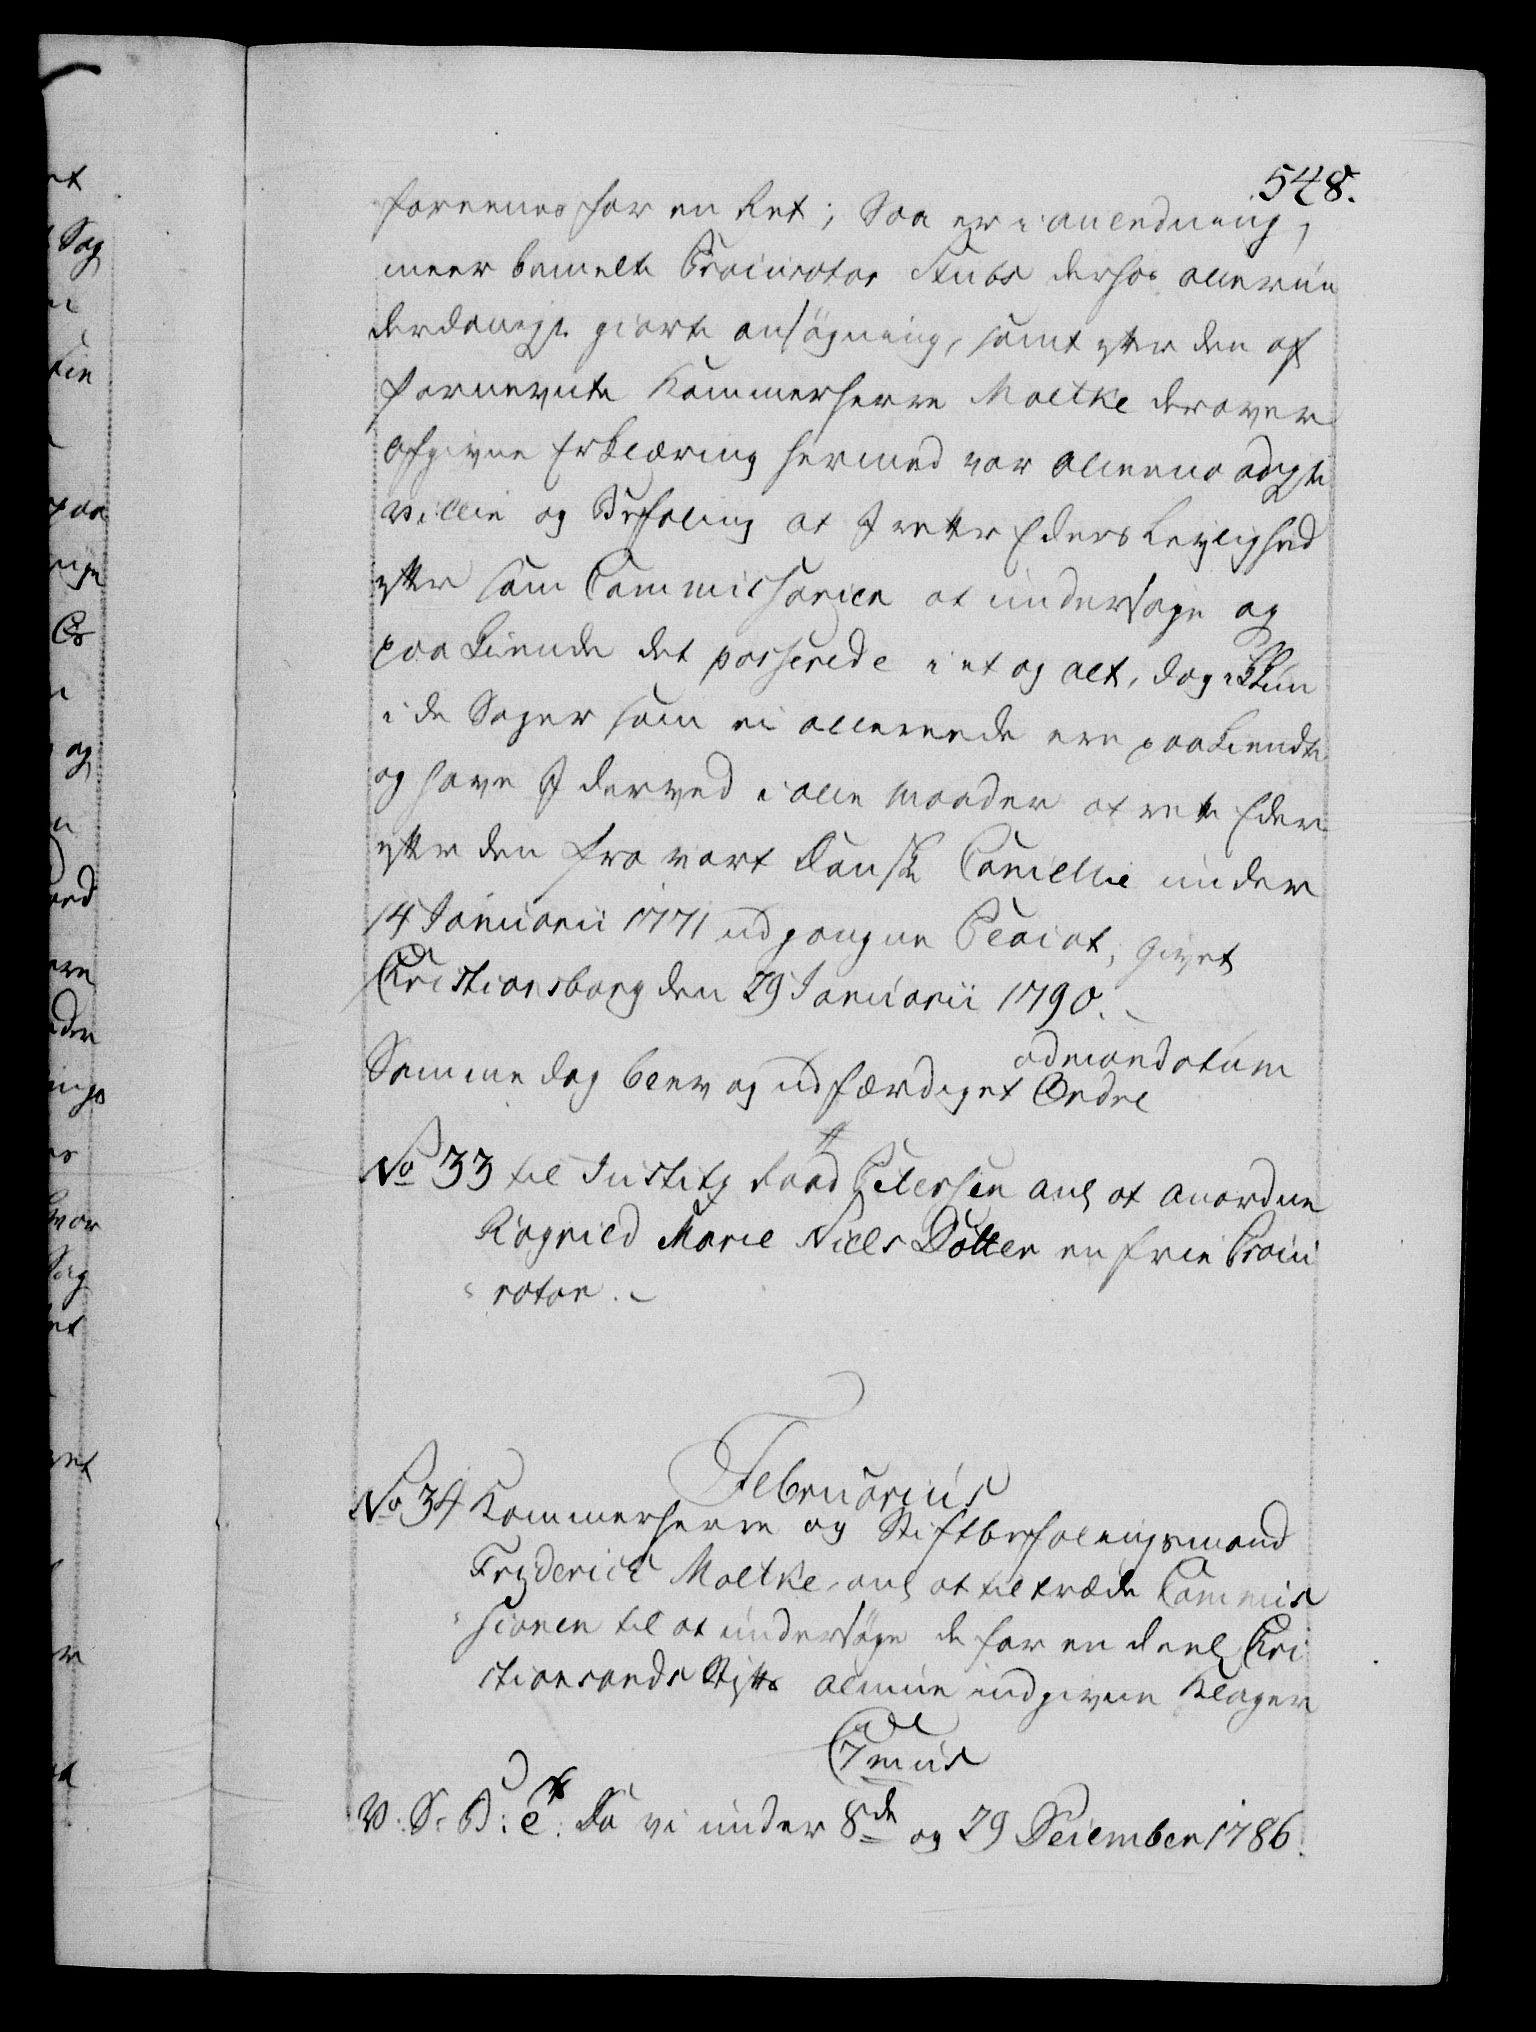 548.
foreenes for en Ret; Saa er i anledning,
meer bemelte Procurator Stubs derhos allerun
derdanigst giorte ansögning, samt efter den af
fornevnte Kammerherre Moltke derover
afgivne Erklæring hermed vor allernaadigste
villie og Befaling at I retter Eders Leylighed
efter som Commissarier at undersøge og
paakiende det passerede i et og alt, dog ikkun
i de Sager som ei allereede ere paakiendte
og have I derved i alle maader at rette Eder
efter den fra vort Danske Cancellie under
14 Januarii 1771 udgangne Placat, givet
Christiansborg den 29 Januarii 1790.
Samme dag blev og udfærdiget Ordre
ad mandatum
No 33 til Justitz Raad Petersen anl at anordne
Ragnild Marie Niels Dotter en frie Procu
rator.
Februarius
No 34 Kammerherre og Stiftbefalingsmand
Friderich Moltke, anl at tiltræde Commis
sionen til at undersøge de for en deel Chri
stiansands Stifts almue indgivne Klager
C 7mus
V: S: B: e: Da vi under 8de og 29 December 1786.